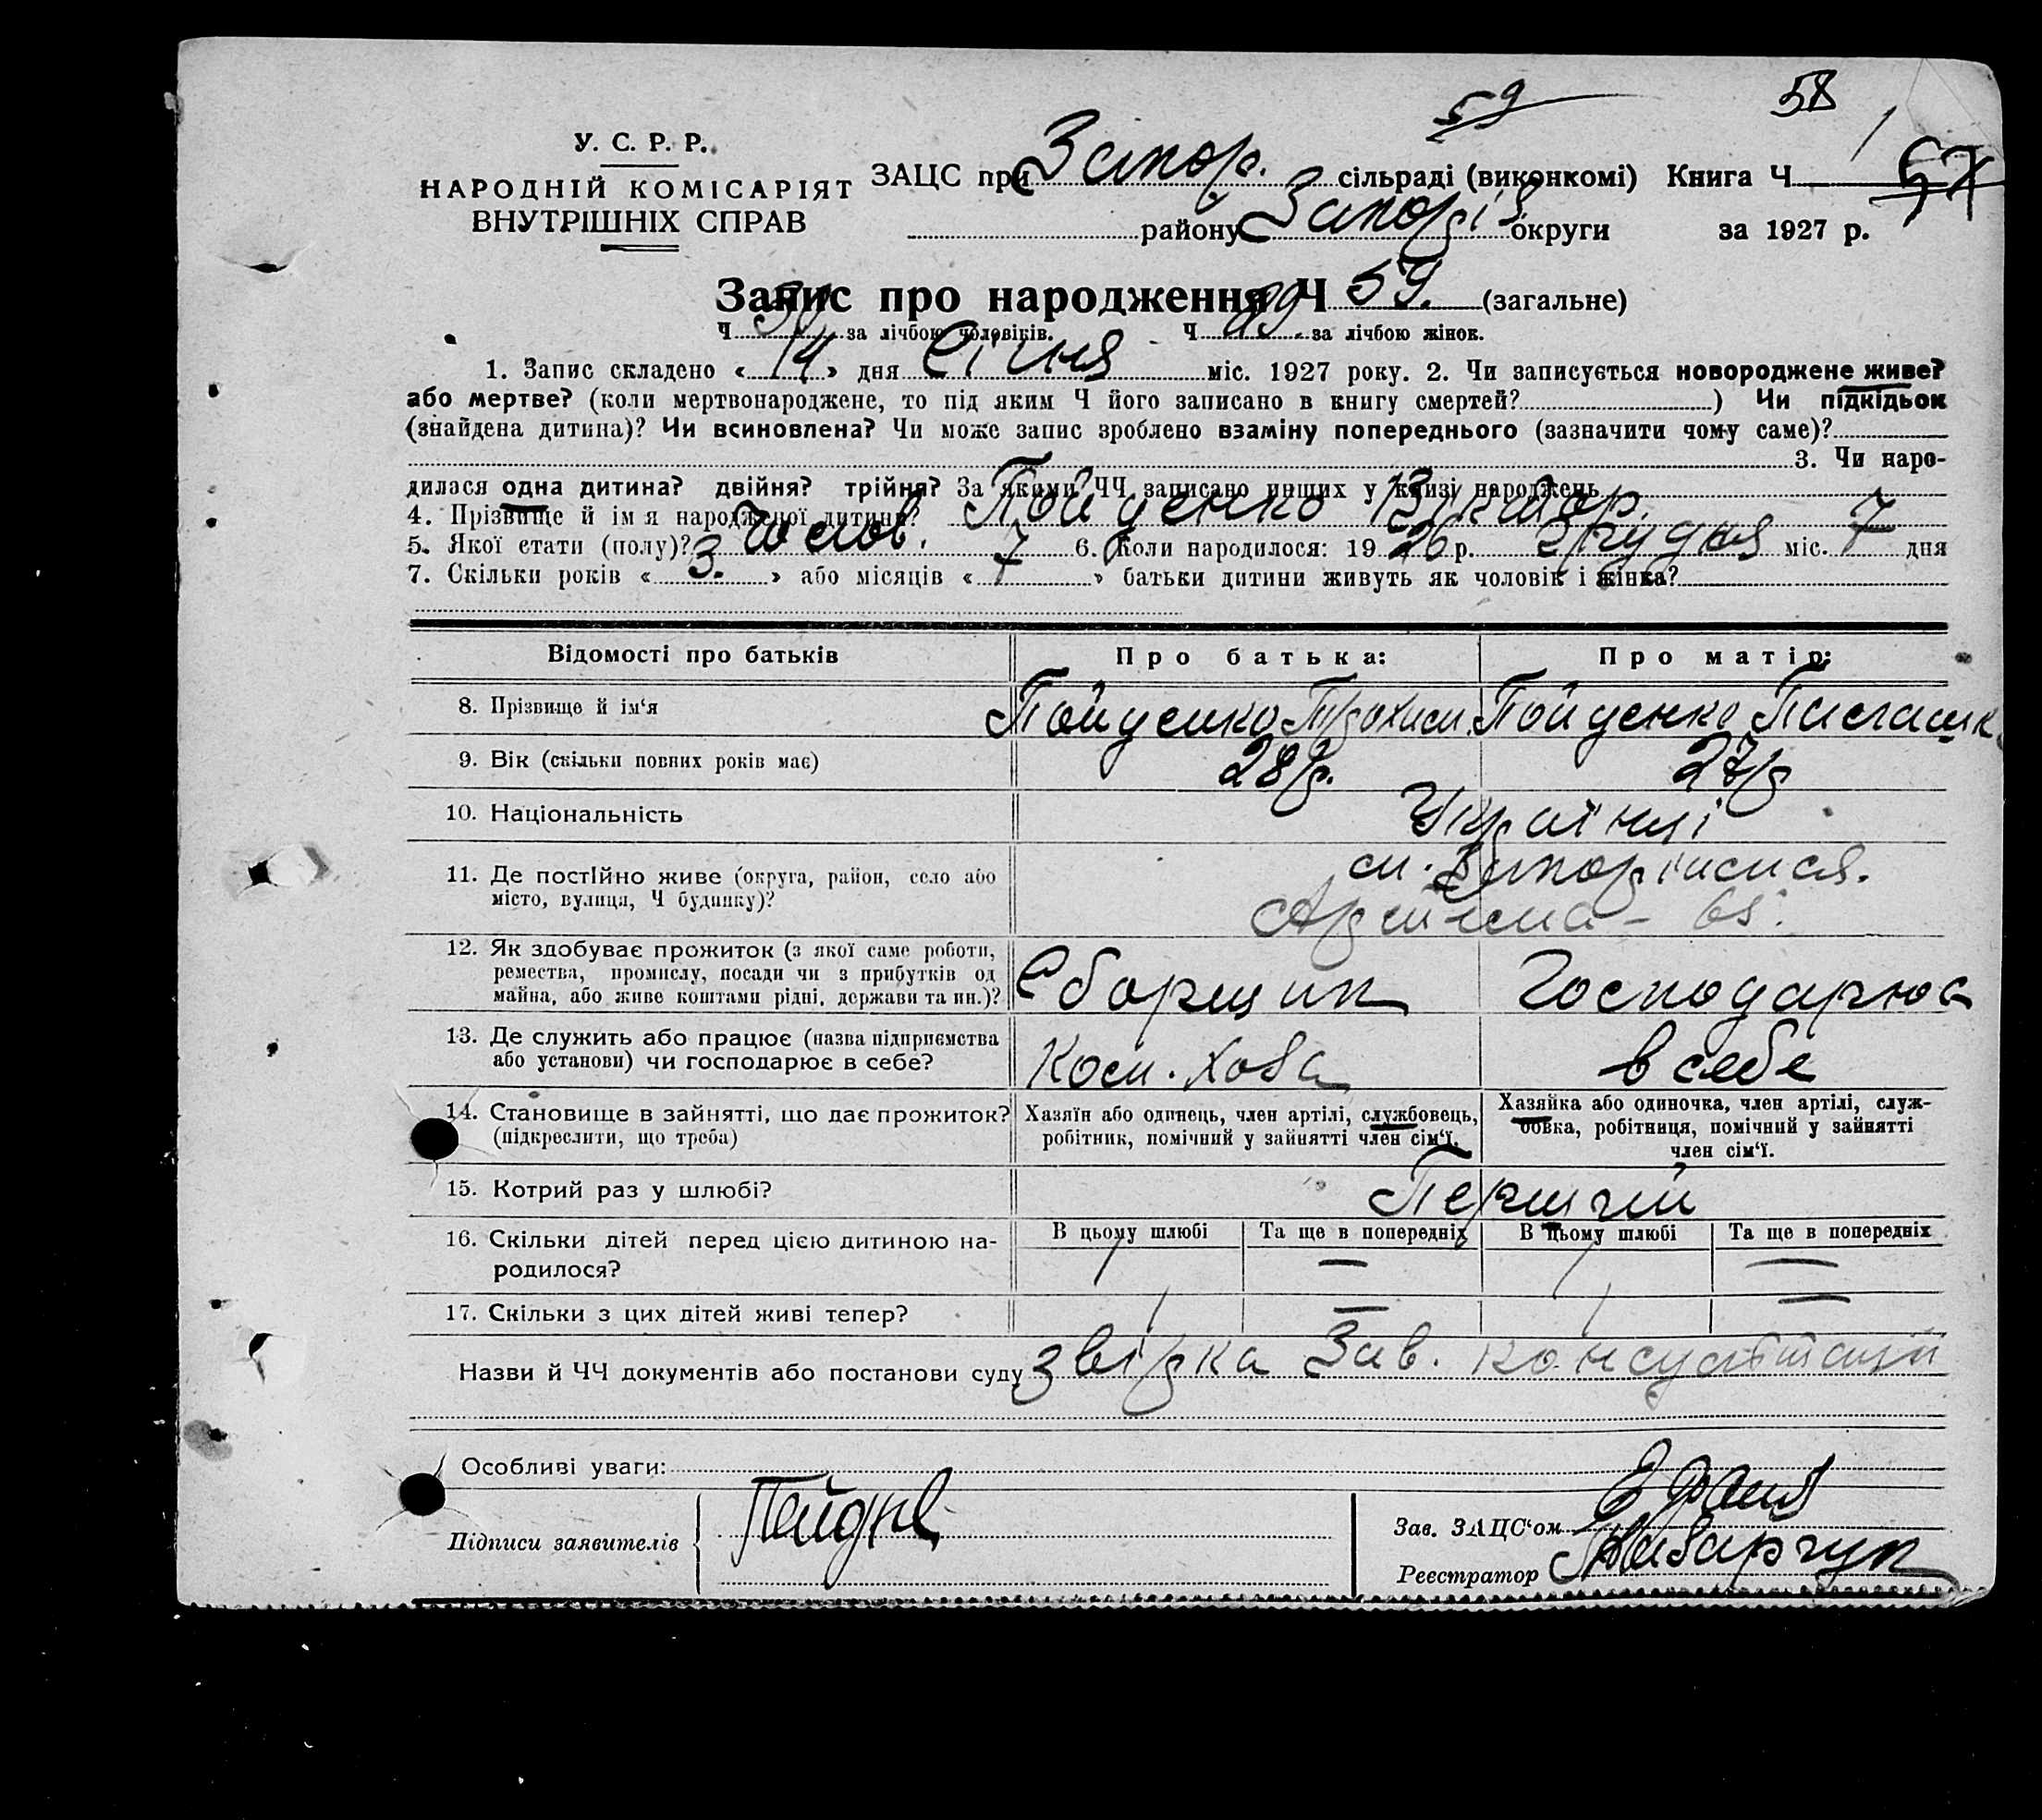 59 58
У. С. Р. Р.
НАРОДНІЙ КОМІСАРІЯТ
ВНУТРІШНІХ СПРАВ
ЗАЦС при Запор. сільраді (виконкомі) Книга Ч 1 57
району Запорі округи за 1927 р.
Запис про народження Ч 59. (загальне)
Ч за лічбою чоловіків. Ч за лічбою жінок.
1. Запис складено «14» дня Січня міс. 1927 року. 2. Чи записується новороджене живе?
або мертве? (коли мертвонароджене, то під яким Ч його записано в книгу смертей?) Чи підкідьок
(знайдена дитина)? Чи всиновлена? Чи може запис зроблено взаміну попереднього (зазначити чому саме)?
3. Чи наро-
дилася одна дитина? двійня? трійня? За якими ЧЧ записано инших у книзі народжень
4. Прізвище й ім я народженої дитини? Пойденко Віктор.
5. Якої стати (полу)? Чолов. 6. Коли народилося: 1926 р. Грудня міс. 7 дня
7. Скільки років «3.» або місяців «7» батьки дитини живуть як чоловік і жінка?
Відомості про батьків Про батька: Про матір:
8. Прізвище й ім‘я Пойденко Трохим. Пойденко
9. Вік (скільки повних років має) 28 р. 27 р
10. Національність Українці
11. Де постійно живе (округа, район, село або
місто, вулиця, Ч будинку)?
м. Запоріжжя.
Артема – 65.
12. Як здобуває прожиток (з якої саме роботи,
ремества, промислу, посади чи з прибутків од
майна, або живе коштами рідні, держави та ин.)?
Сборщик Господарює
13. Де служить або працює (назва підприємства
або установи) чи господарює в себе?
Ком. Хоза в себе
14. Становище в зайнятті, що дає прожиток?
(підкреслити, що треба)
Хазяїн або одинець, член артілі, службовець,
робітник, помічний у зайнятті член сім‘ї.
Хазяйка або одиночка, член артілі, служ-
бовка, робітниця, помічний у зайнятті
член сім‘ї.
15. Котрий раз у шлюбі? Перший
16. Скільки дітей перед цією дитиною на-
родилося?
В цьому шлюбі Та ще в попередніх В цьому шлюбі Та ще в попередніх
1 — 1 —
17. Скільки з цих дітей живі тепер? 1 — 1 —
Назви й ЧЧ документів або постанови суду звірка Зав. консультації
Особливі уваги:
Підписи заявителів
Зав. ЗАЦС‘ом
Реєстратор